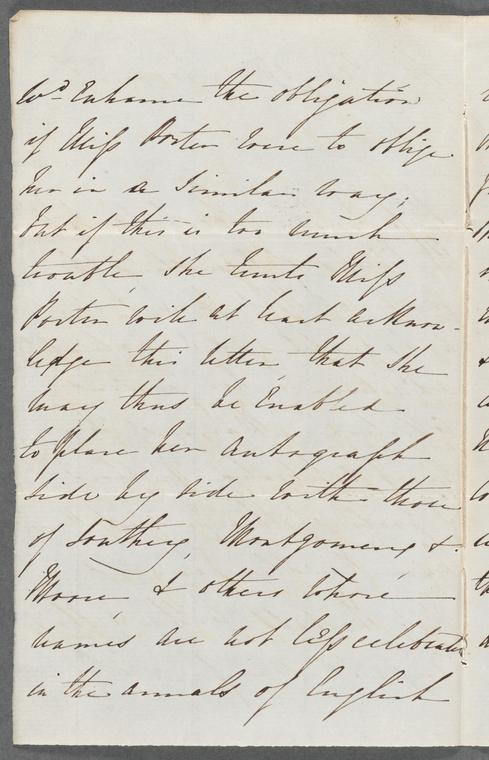 wd. Enhance the obligation
if Miss Porter were to oblige
her in a similar way,
but if this is too much
trouble, she trusts Miss
Porter will at least acknow-
ledge this letter, that she
may thus be Enabled
to place her autograph
side by side with those
of Southey, Montgomery &
Moore, & others whose
names are not less celebrated
in the annals of English